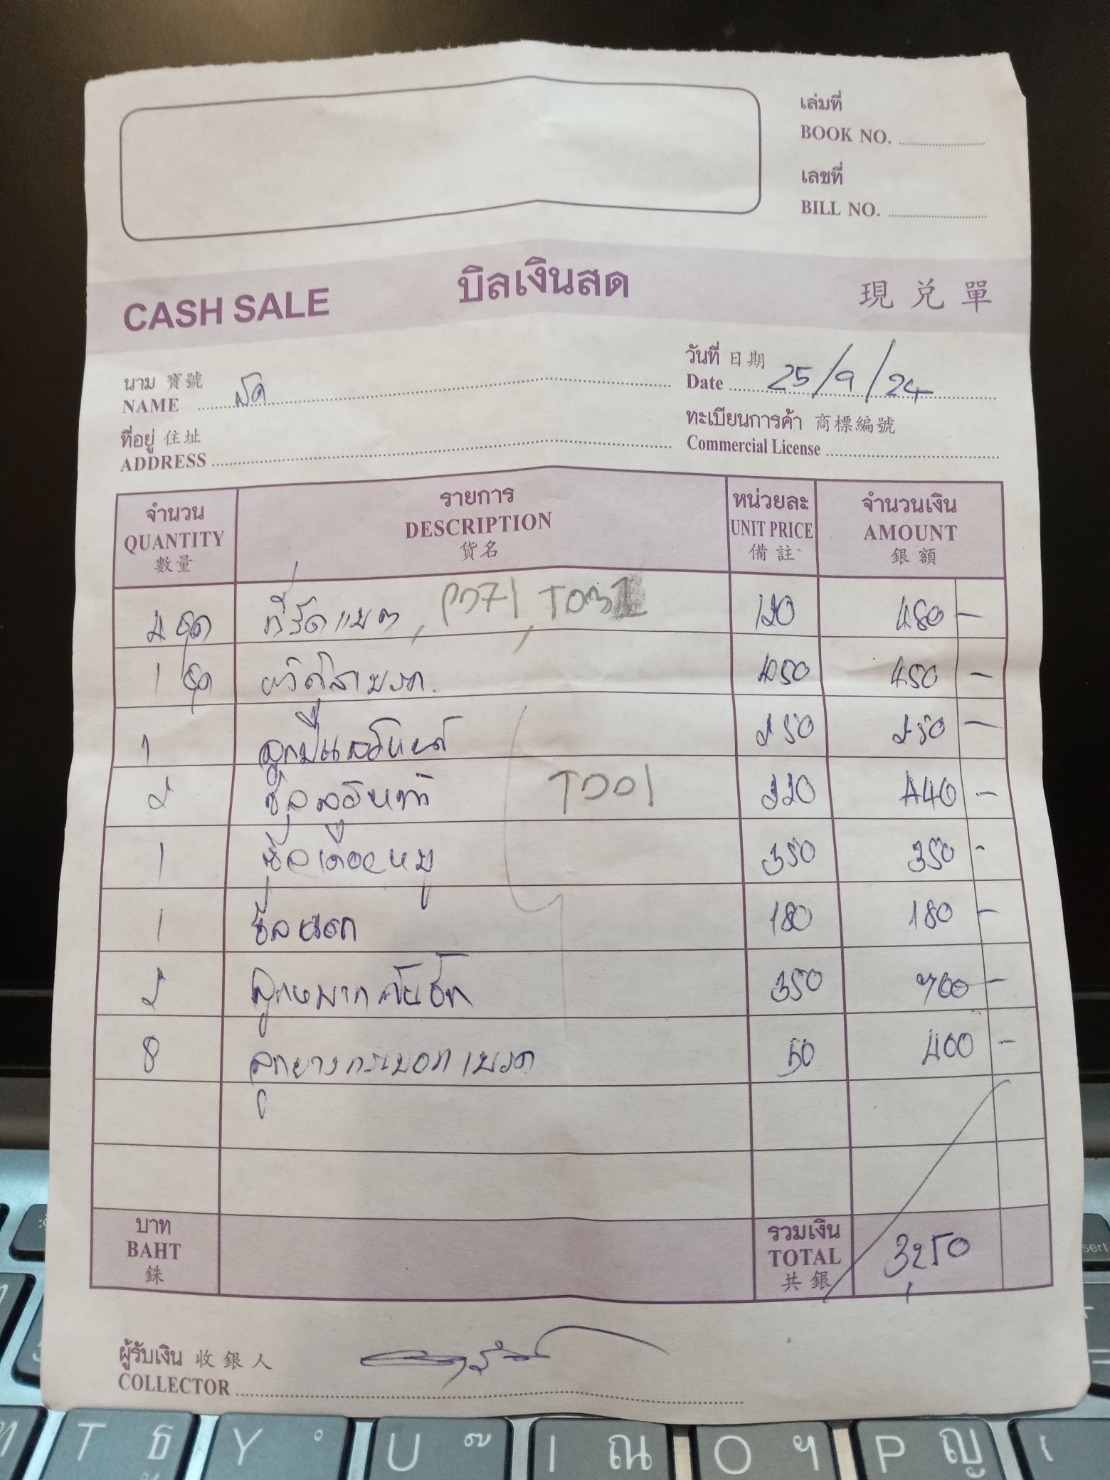 เล่มที่
BOOK NO.
เลขที่
BILL NO.
CASH SALE บิลเงินสด 現兌單
นาม 寶號
NAME
วันที่ 日期
Date 25/9/24
ที่อยู่ 住址
ADDRESS
ทะเบียนการค้า 商標編號
Commercial License
จำนวน รายการ หน่วยละ จำนวนเงิน
QUANTITY DESCRIPTION UNIT PRICE AMOUNT
數量 貨名 備註 銀額
4 ชุด ที่รัดแบต, P071, T031 120 480 -
1 ชุด 450 450 -
1 250 250 -
2 T001 220 440 -
1 350 350 -
1 180 180 -
2 ลูกหมากคันชัก 350 700 -
8 ลูกยางกระบอกเบรค 50 400 -
บาท
BAHT
銖
รวมเงิน
TOTAL 3,250
共銀
ผู้รับเงิน 收銀人
COLLECTOR